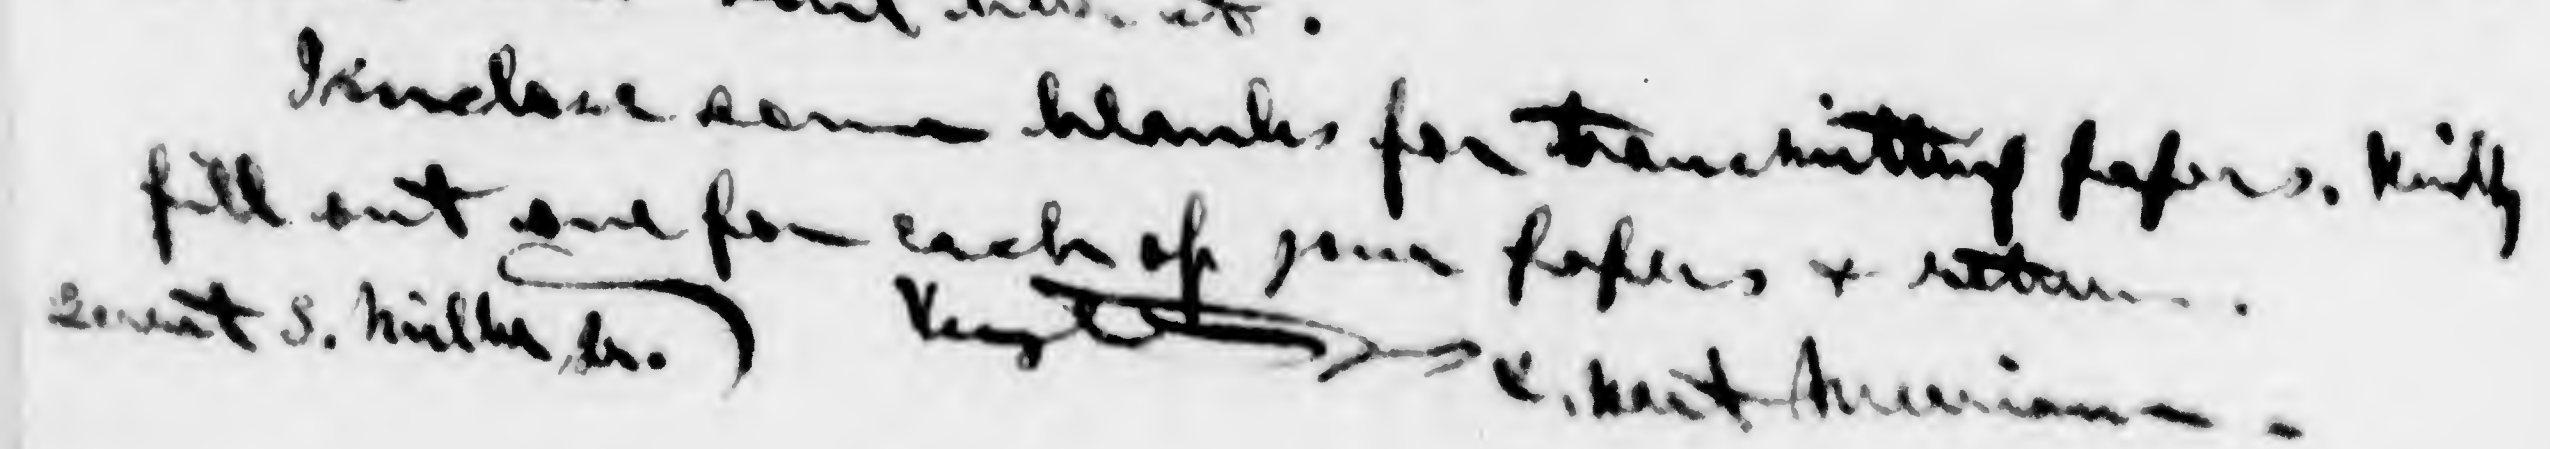 I enclose some blanks for transmitting papers. Kindly
fill out one for each of your papers & return.
Gerrit S. Miller, Jr. Very truly
C. Hart Merriam.